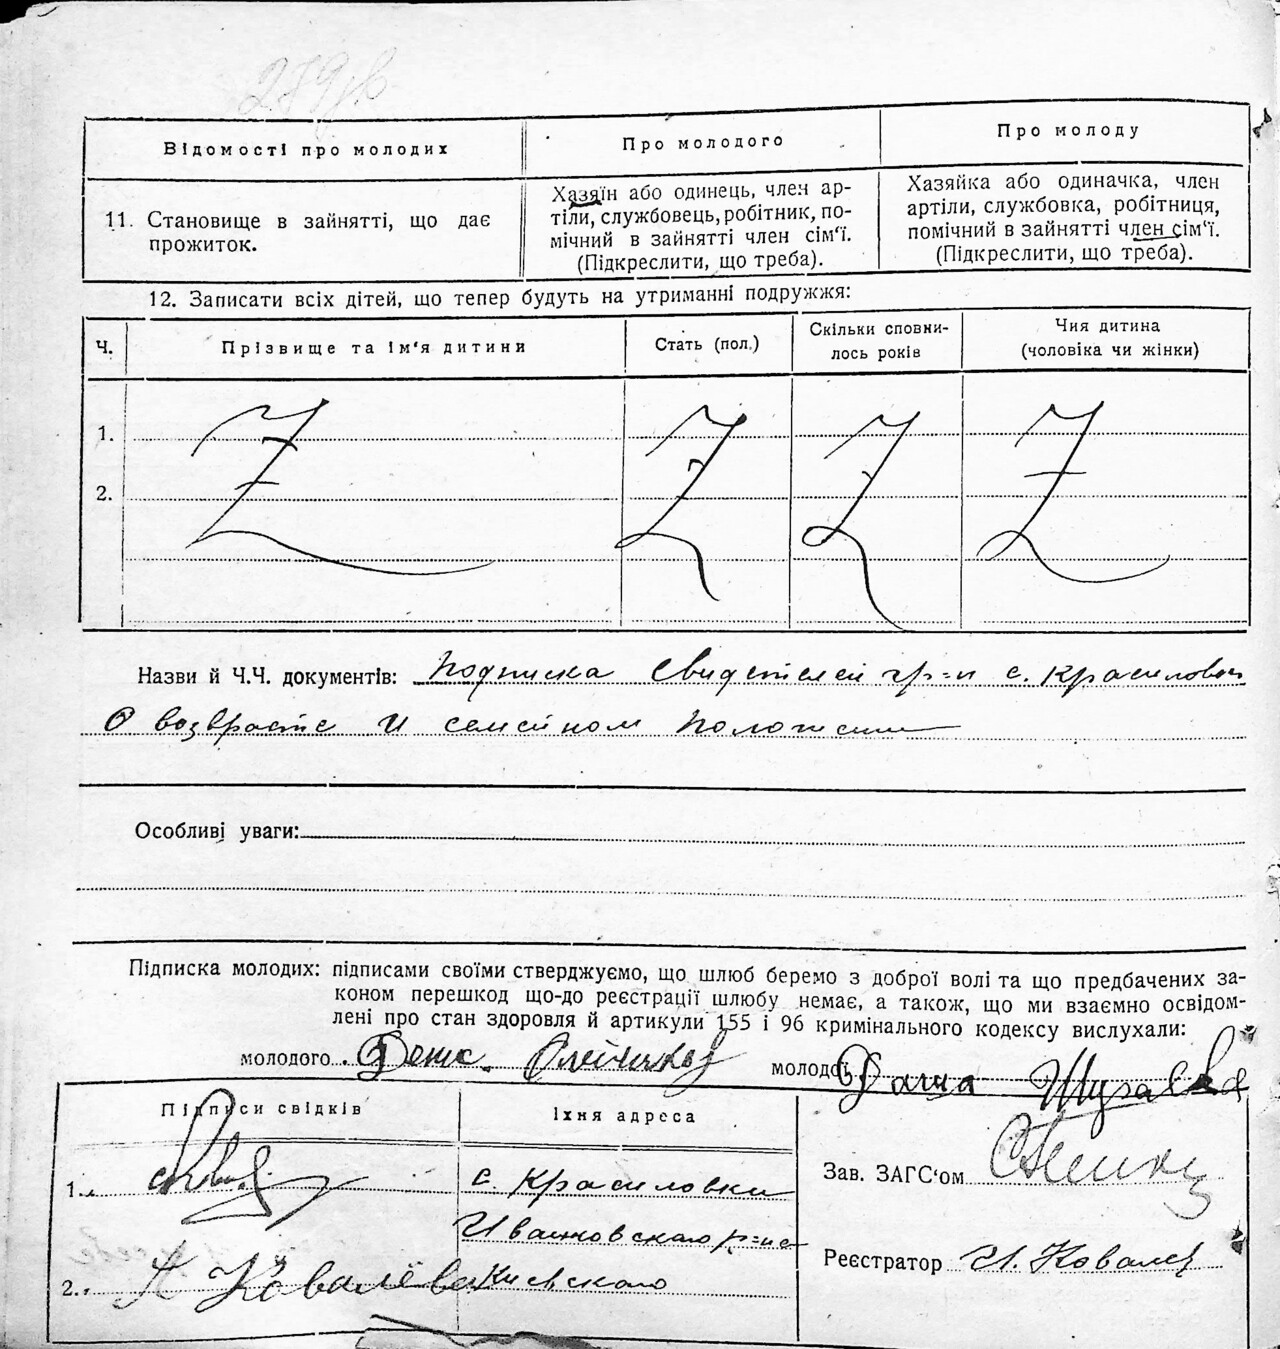 Відомості про молодих
Про молодого
Про молоду
11. Становище в зайнятті, що дає
прожиток.
Хазяїн або одинець, член ар-
тіли, службовець, робітник, по-
мічний в зайнятті член сім'ї.
(Підкреслити, що треба).
Хазяйка або одиначка, член
артіли, службовка, робітниця,
помічний в зайнятті член сім'ї.
(Підкреслити, що треба).
12. Записати всіх дітей, що тепер будуть на утриманні подружжя:
Ч.
Прізвище та ім'я дитини
Стать (пол.)
Скільки сповни-
лось років
Чия дитина
(чоловіка чи жінки)
1.
2.
Назви й Ч.Ч. документів: Подписка свидетелей гр-н с. Красиловки
О возврасте и семейном положении
Особливі уваги:
Підписка молодих: підписами своїми стверджуємо, що шлюб беремо з доброї волі та що предбачених за-
коном перешкод що-до реєстрації шлюбу немає, а також, що ми взаємно освідом-
лені про стан здоровля й артикули 155 і 96 кримінального кодексу вислухали:
молодого
молодої Даша
Підписи свідків
Їхня адреса
1.
с. Красиловки
Иванковского р-на
2. А Ковалёва
Киевского
Зав. ЗАГС'ом
Реєстратор И. Ковалец